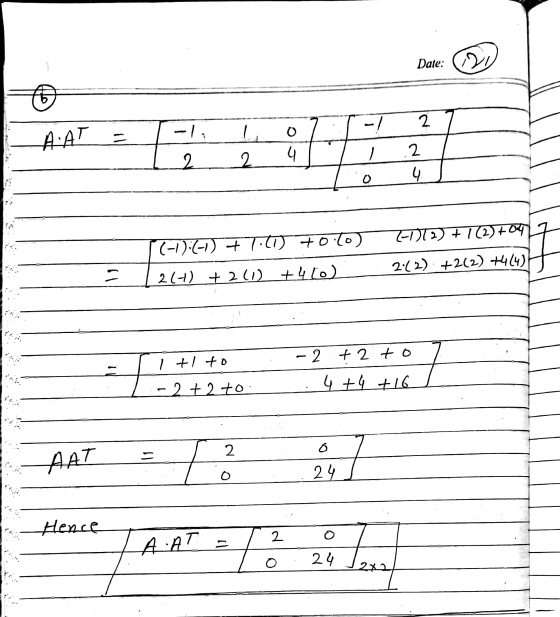 Date: 121
(b)
A·Aᵀ = [ -1, 1, 0 ] · [ -1 2 ]
[ 2 2 4 ] [ 1 2 ]
[ 0 4 ]
= [ (-1)·(-1) + 1·(1) + 0·(0) (-1)(2) + 1(2) + 0·4 ]
[ 2(-1) + 2(1) + 4(0) 2·(2) + 2(2) + 4(4) ]
= [ 1 + 1 + 0 -2 + 2 + 0 ]
[ -2 + 2 + 0 4 + 4 + 16 ]
AAᵀ = [ 2 0 ]
[ 0 24 ]
Hence
A·Aᵀ = [ 2 0 ]
[ 0 24 ]2×2